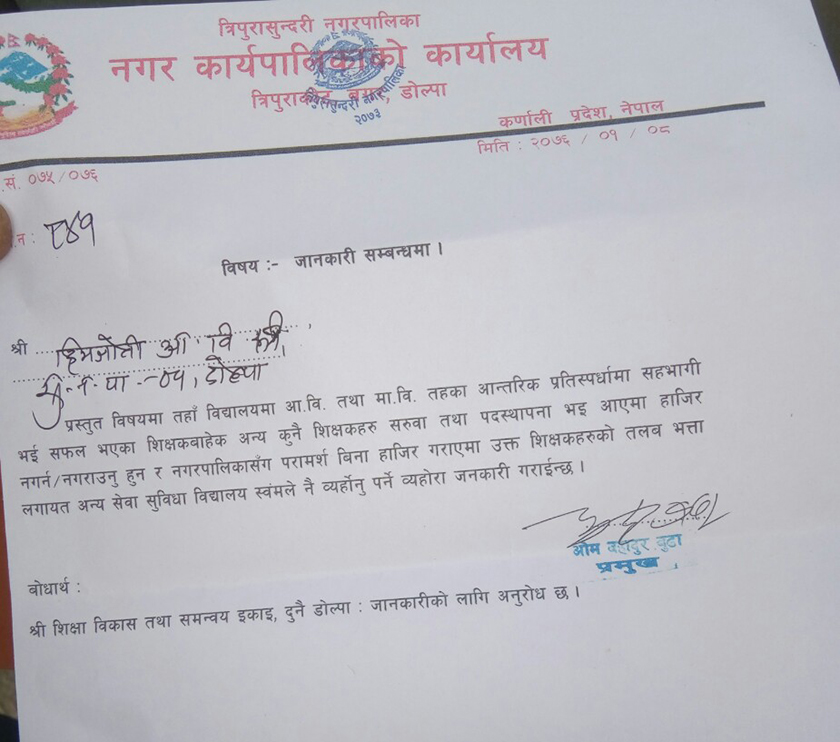 त्रिपुरासुन्दरी नगरपालिका
नगर कार्यपालिकाको कार्यालय
त्रिपुराकोट, डोल्पा
त्रिपुरासुन्दरी नगरपालिका
२०७३
कर्णाली प्रदेश, नेपाल
मिति : २०७६ / ०१ / ०८
.सं. ०७५/०७६
.न : ८४१
विषय :- जानकारी सम्बन्धमा ।
श्री हिमजोती आ वि
त्रि. न. पा -०५, डोल्पा
प्रस्तुत विषयमा तहाँ विद्यालयमा आ.वि. तथा मा.वि. तहका आन्तरिक प्रतिस्पर्धामा सहभागी
भई सफल भएका शिक्षकबाहेक अन्य कुनै शिक्षकहरु सरुवा तथा पदस्थापना भइ आएमा हाजिर
नगर्न/नगराउनु हुन र नगरपालिकासँग परामर्श बिना हाजिर गराएमा उक्त शिक्षकहरुको तलब भत्ता
लगायत अन्य सेवा सुविधा विद्यालय स्वंमले नै व्यर्होनु पर्ने व्यहोरा जनकारी गराईन्छ ।
ओम बहादुर बुढा
प्रमुख
बोधार्थ :
श्री शिक्षा विकास तथा समन्वय इकाइ, दुनै डोल्पा : जानकारीको लागि अनुरोध छ ।